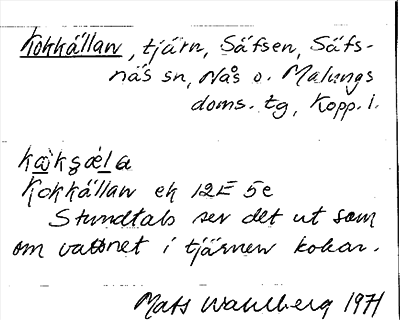 Kokkällan, tjärn, Säfsen, Säfs-
näs sn, Nås o. Malungs
doms. tg, Kopp. l.
Kokkällan ek 12E 5e
Stundtals ser det ut som
om vattnet i tjärnen kokar.
Mats Wahlberg 1971